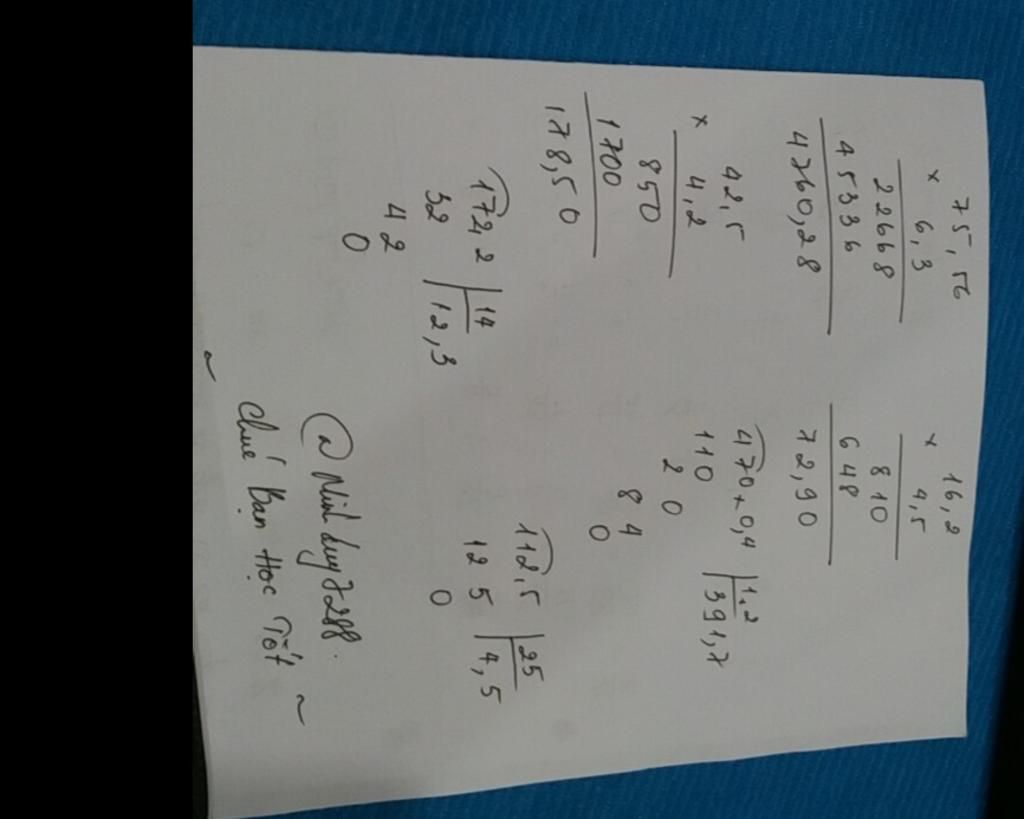 75,56
× 6,3
22668
45336
4760,28
16,2
× 4,5
810
648
72,90
42,5
× 4,2
850
1700
178,50
1,2
110 391,7
20
84
0
172,2 14
32 12,3
42
0
112,5 25
125 4,5
0
~ Chúc Bạn Học Tốt ~